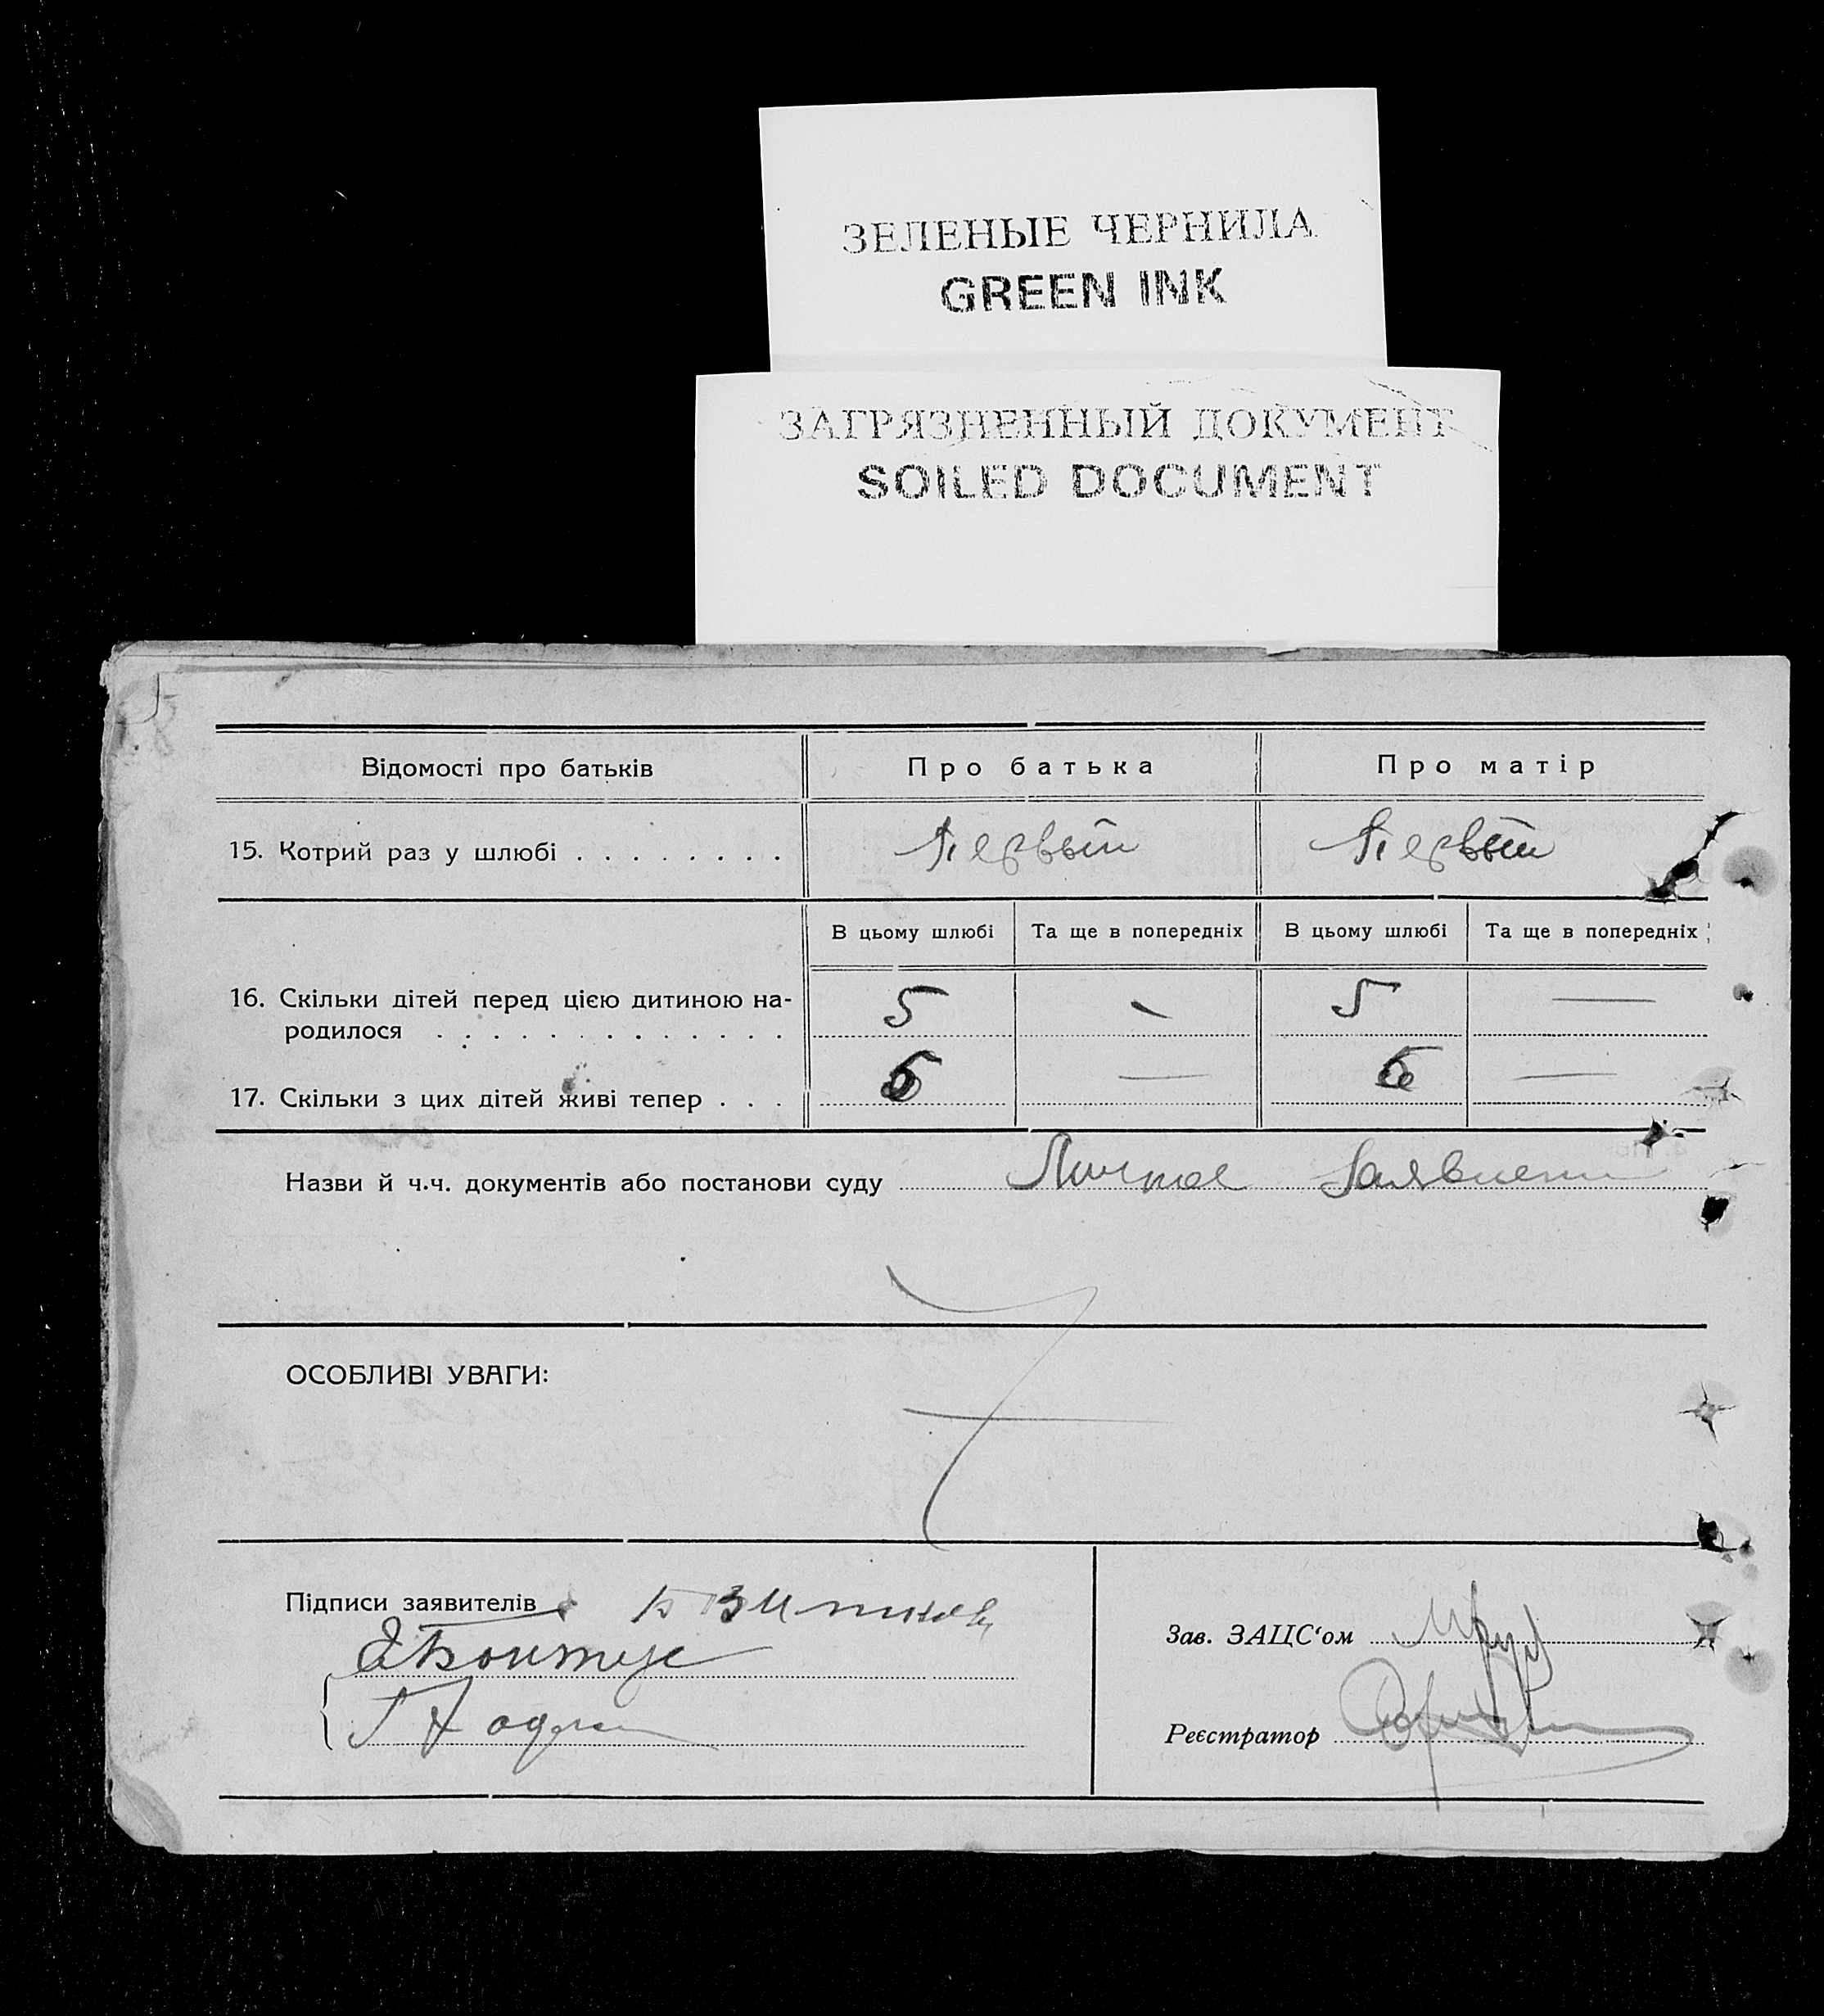 ЗЕЛЕНЫЕ ЧЕРНИЛА
GREEN INK
ЗАГРЯЗНЕННЫЙ ДОКУМЕНТ
SOILED DOCUMENT
Відомості про батьків Про батька Про матір
15. Котрий раз у шлюбі . . . . . . . . Первый Первый
В цьому шлюбі Та ще в попередніх В цьому шлюбі Та ще в попередніх
16. Скільки дітей перед цією дитиною на- 5 — 5 —
родилося . . . . . . . . . . . . .
17. Скільки з цих дітей живі тепер . . . — —
Назви й ч.ч. документів або постанови суду Личное Заявление
ОСОБЛИВІ УВАГИ:
Підписи заявителів
Зав. ЗАЦС‘ом
Реєстратор